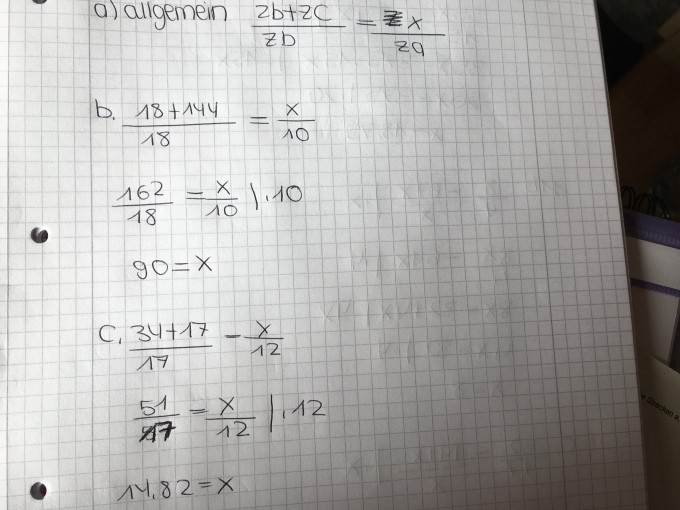 a) allgemein (zb+zc)/zb = x/za
b. (18+144)/18 = x/10
162/18 = x/10 | · 10
90 = x
c. (34+17)/17 - x/12
51/17 = x/12 | · 12
14,82 = x